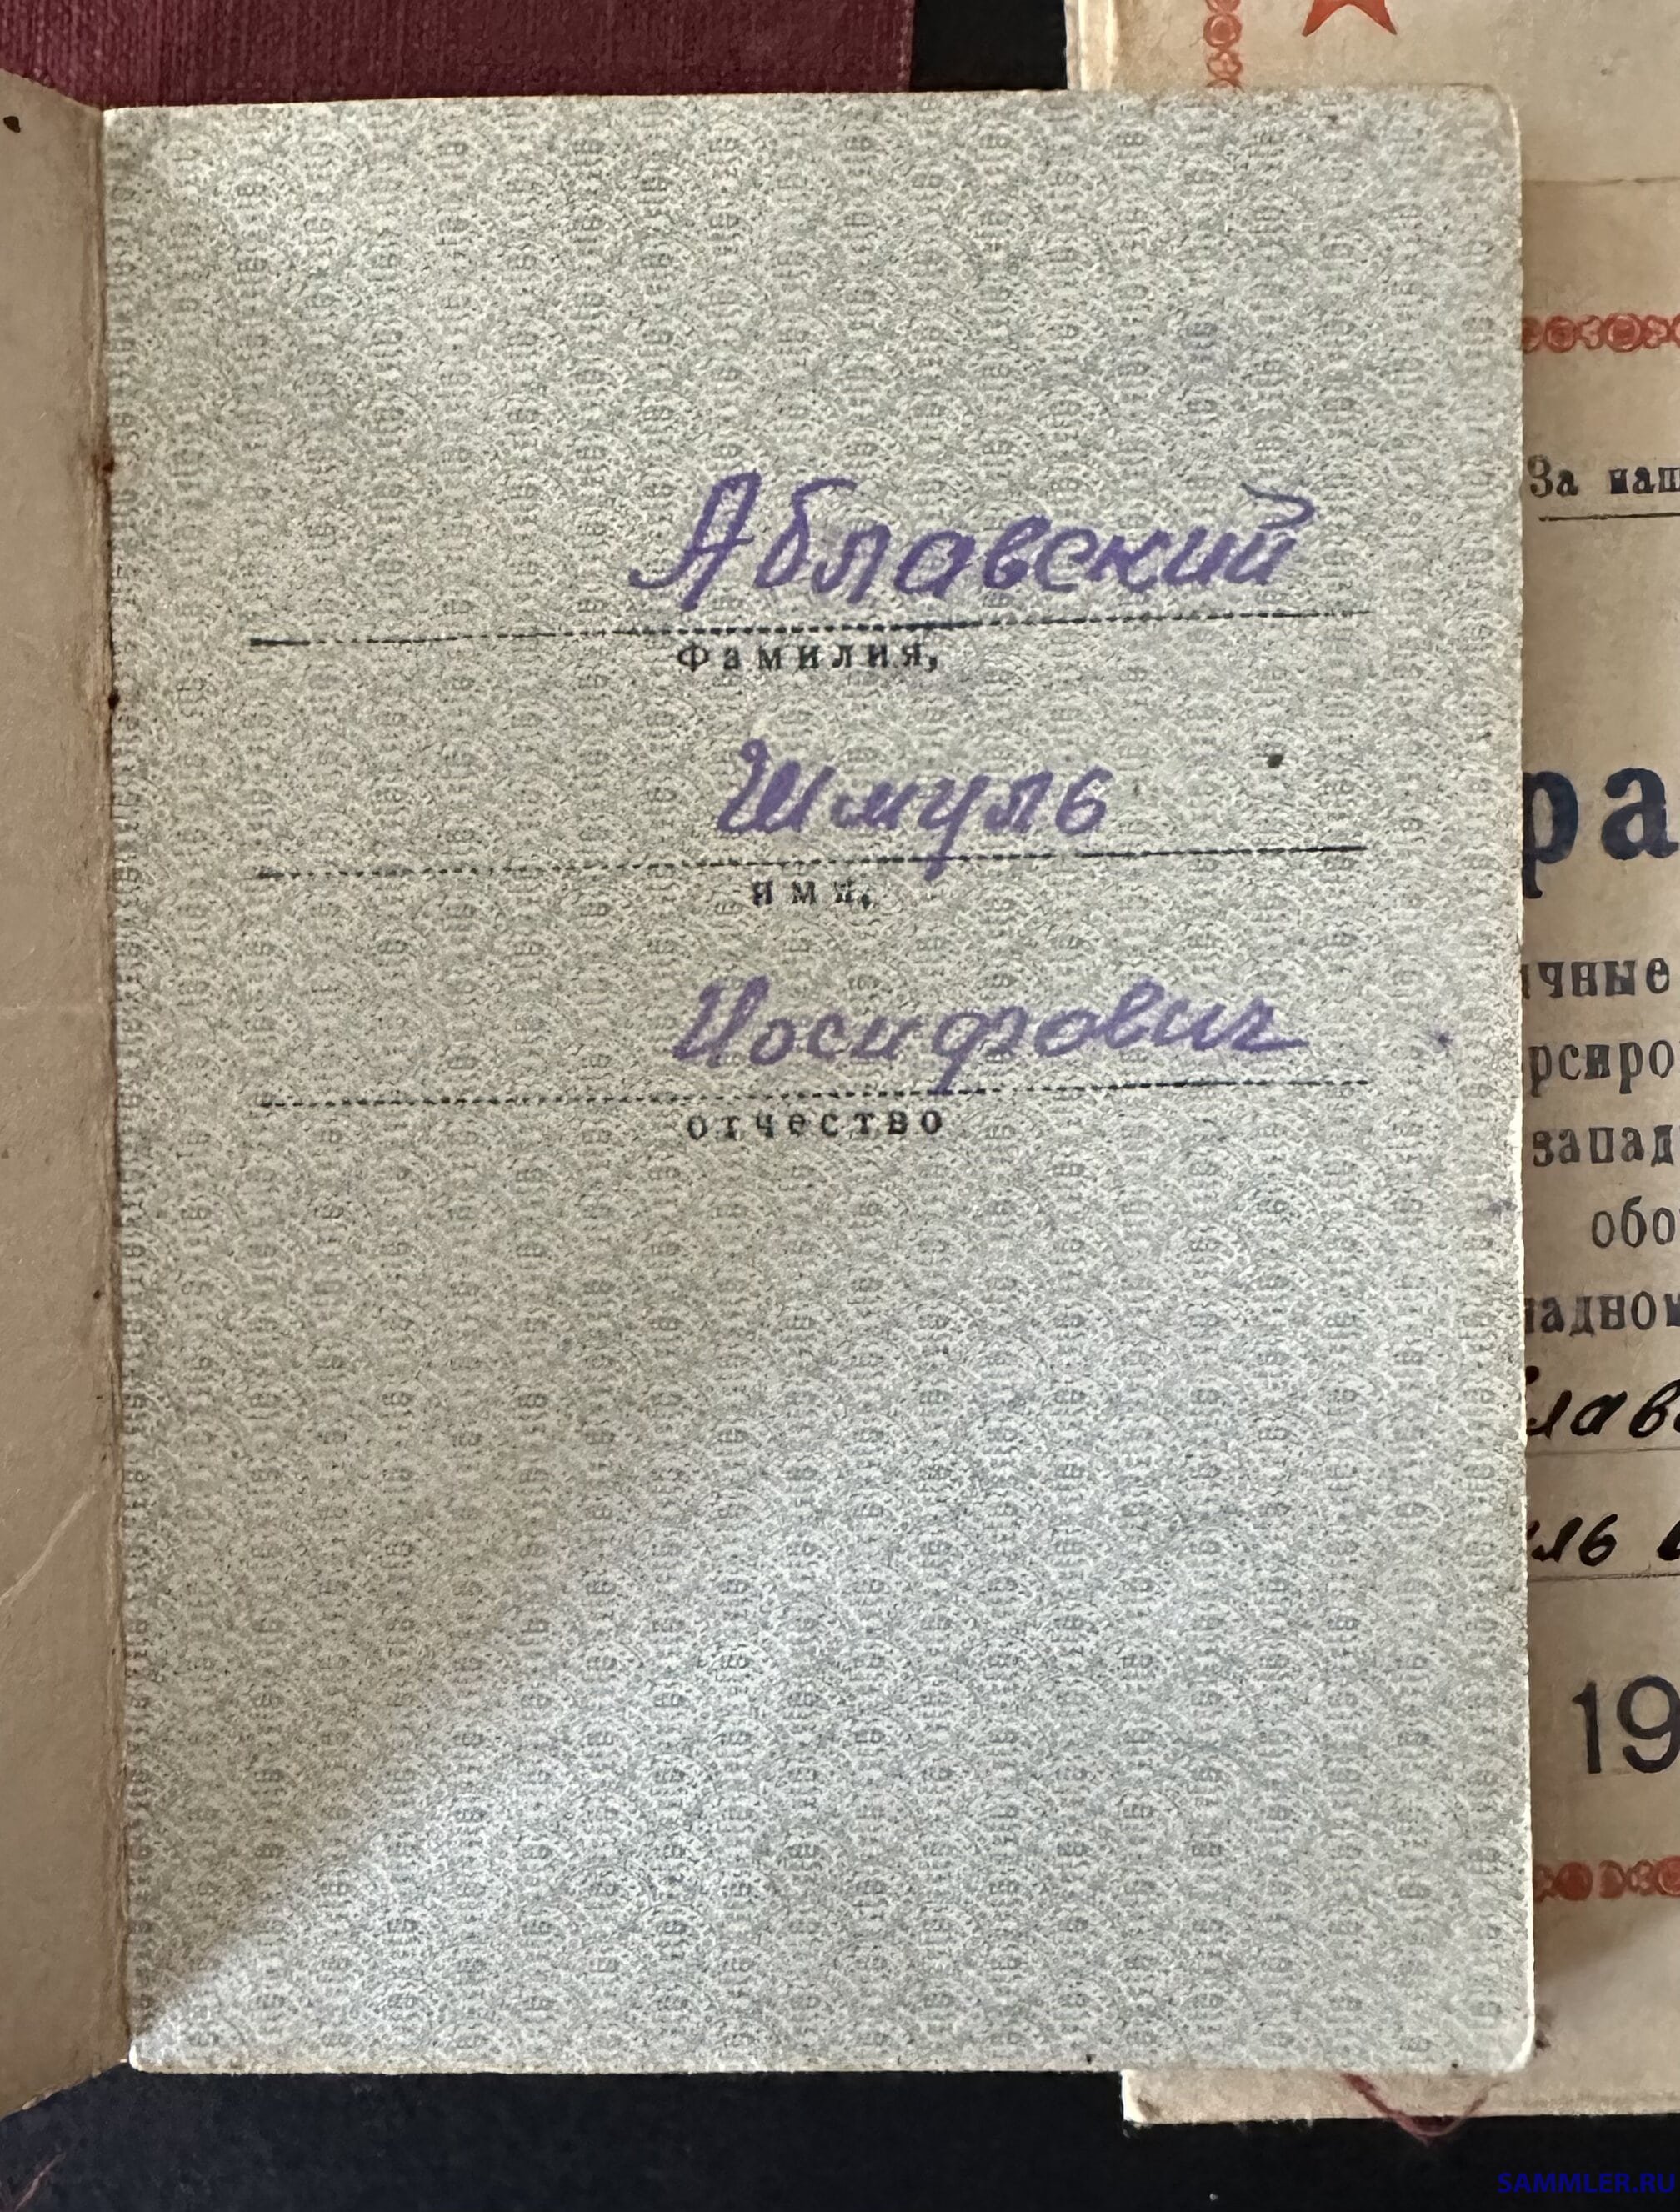 Аблавский
Фамилия,
Шмуль
имя,
Иосифович
отчество
За наш
ра
чные
рсиро
запад
обо
адном
лав
ль
19
SAMMLER.RU